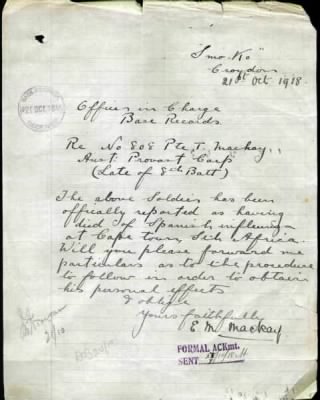 "Smo-Ko"
Croydon
21st Oct 1918.
Officer in Charge
Base Records
Re No 808 Pte T. Mackay,
Aust Provost Corps
(Late of 8th Batt)
The above Soldier has been
offically reported as having
died of Spanish influenza
at Cape town, Sth Africa.
Will you please forward me
particulars as to the procedure
to follow in order to obtain
his personal effects
& oblige
Yours faithfully
E. M. Mackay
FORMAL ACKmt.
SENT